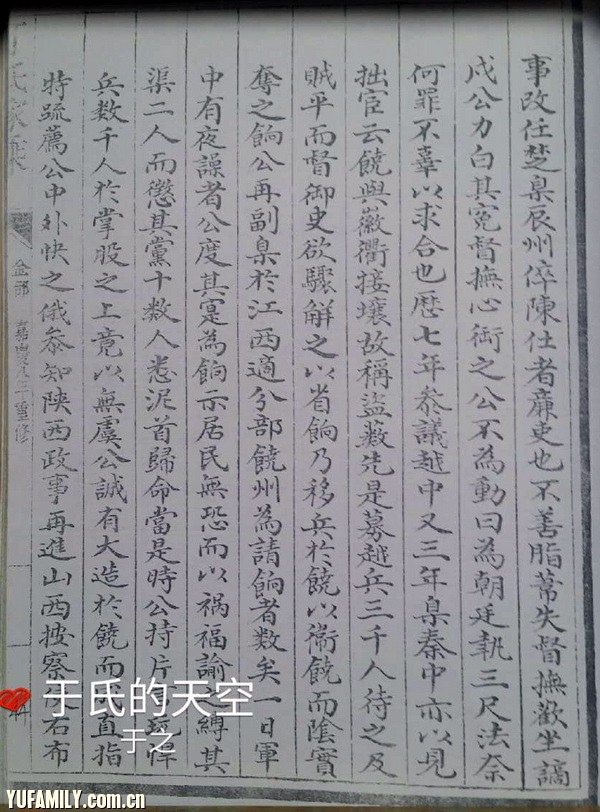 事改任楚臬辰州倅陳仕者亷吏也不善脂韋失督撫歡坐謫
戍公力白其寃督撫心銜之公不為動曰為朝廷執三尺法奈
何罪不辜以求合也歴七年叅議越中又三年臬秦中亦以見
拙宦云饒與徽衢接壤故稱盜藪先是募越兵三千人待之及
賊平而督御史欲驟解之以省餉乃移兵於饒以衞饒而陰實
奪之餉公再副臬於江西適分部饒州為請餉者数矣一日軍
中有夜譟者公度其寔為餉示居民無恐而以禍福諭之縛其
渠二人而懲其黨十数人悉泥首歸命當是時公持片玩悍
兵数千人於掌股之上竟以無虞公誠有大造於饒而直指
特疏薦公中外快之俄叅知陝西政事再進山西按察右布
氏家乗
金部 嘉慶八年重修
于氏的天空
于之
YUFAMILY.com.cn